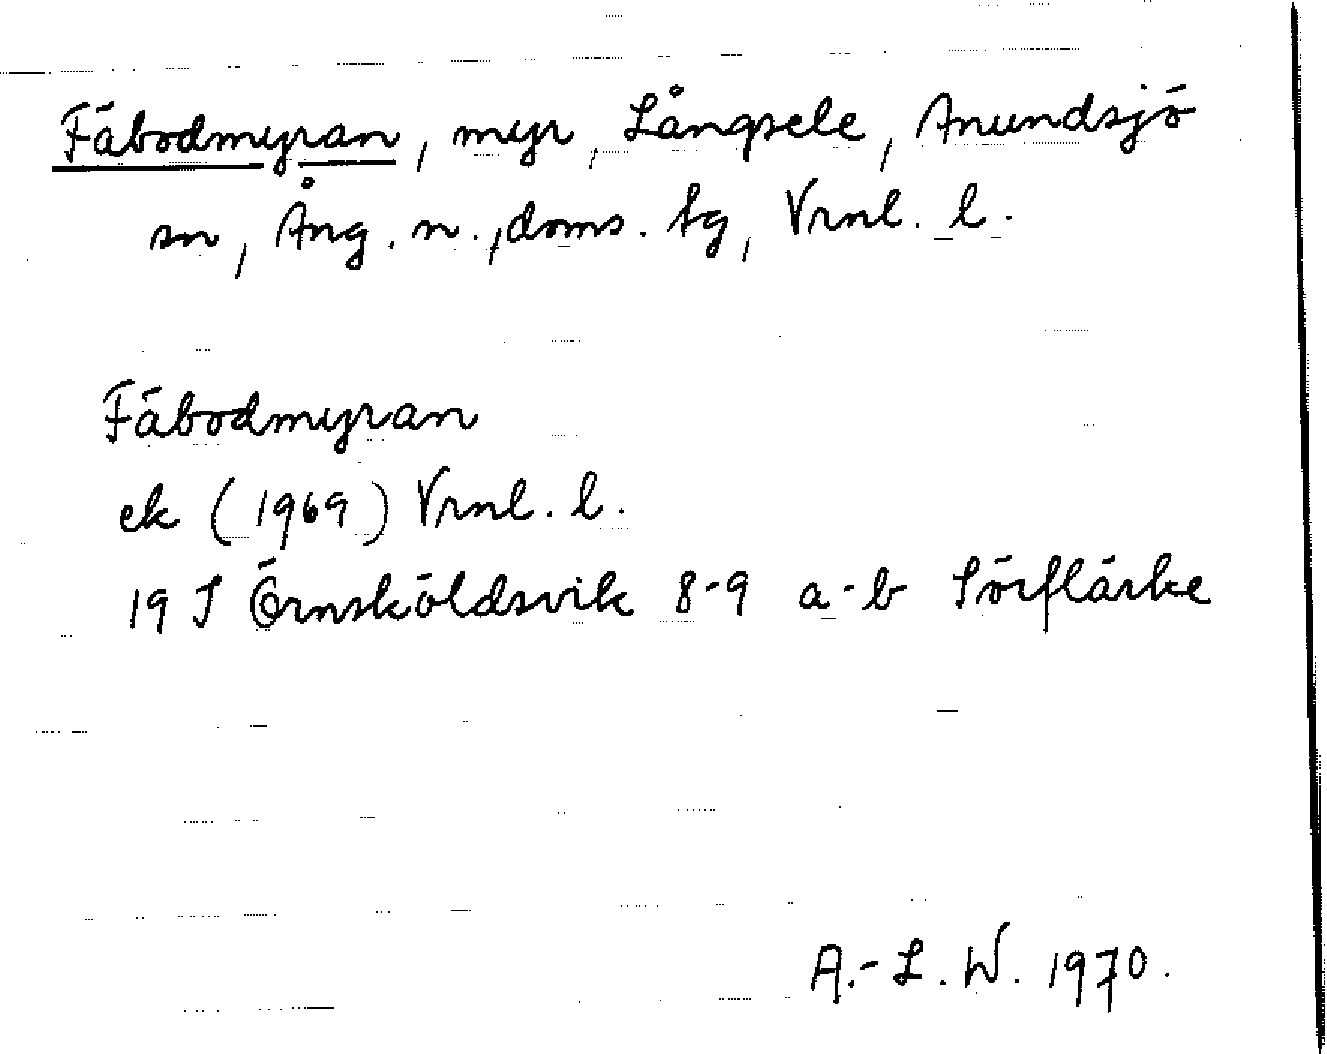 Fäbodmyran, myr, Långsele, Anundsjö
sn, Ång. n., doms. tg, Vrnl. l.
Fäbodmyran
ek (1969) Vrnl. l.
19 J Örnsköldsvik 8-9 a-b Sörflärke
A.-L. W. 1970.